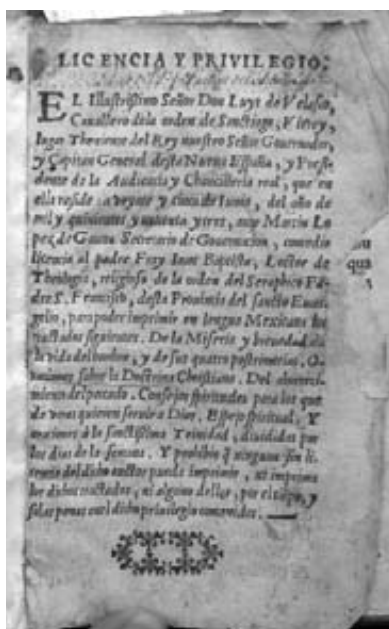 LICENCIA Y PRIVILEGIO.
EL Illustrissimo Señor Don Luys de Velasco,
Cavallero dela orden de Sanctiago, Virrey,
lugar Theniente del Rey nuestro Señor Governador,
y Capitan General desta Nueva España, y Presi-
dente de la Audiencia y Chancilleria real, que en
ella reside: a veynte y cinco de Iunio, del año de
mil y quinientos y noventa y tres, ante Martin Lo
pez de Gauna Secretario de Governacion, concedio
licencia al padre Fray Ioan Baptista, Lector de
Theologia, religioso de la orden del Seraphico Pa-
dre S. Francisco, desta Provincia del sancto Evan-
gelio, para poder imprimir en lengua Mexicana los
tractados siguientes. De la Miseria y brevedad de
la vida del hombre, y de sus quatro postrimerias. O-
raciones sobre la Doctrina Christiana. Del aborresci-
miento del peccado. Consejos spirituales para los que
de veras quieren servir a Dios. Espejo spiritual. Y
oraciones a la sanctissima Trinidad, divididas por
los dias de la semana. Y prohibio q̃ ninguno sin li-
cencia del dicho auctor pueda imprimir, ni imprima
los dichos tractados, ni alguno dellos, por el tiẽpo, y
so las penas en el dicho privilegio contenidas.
qua